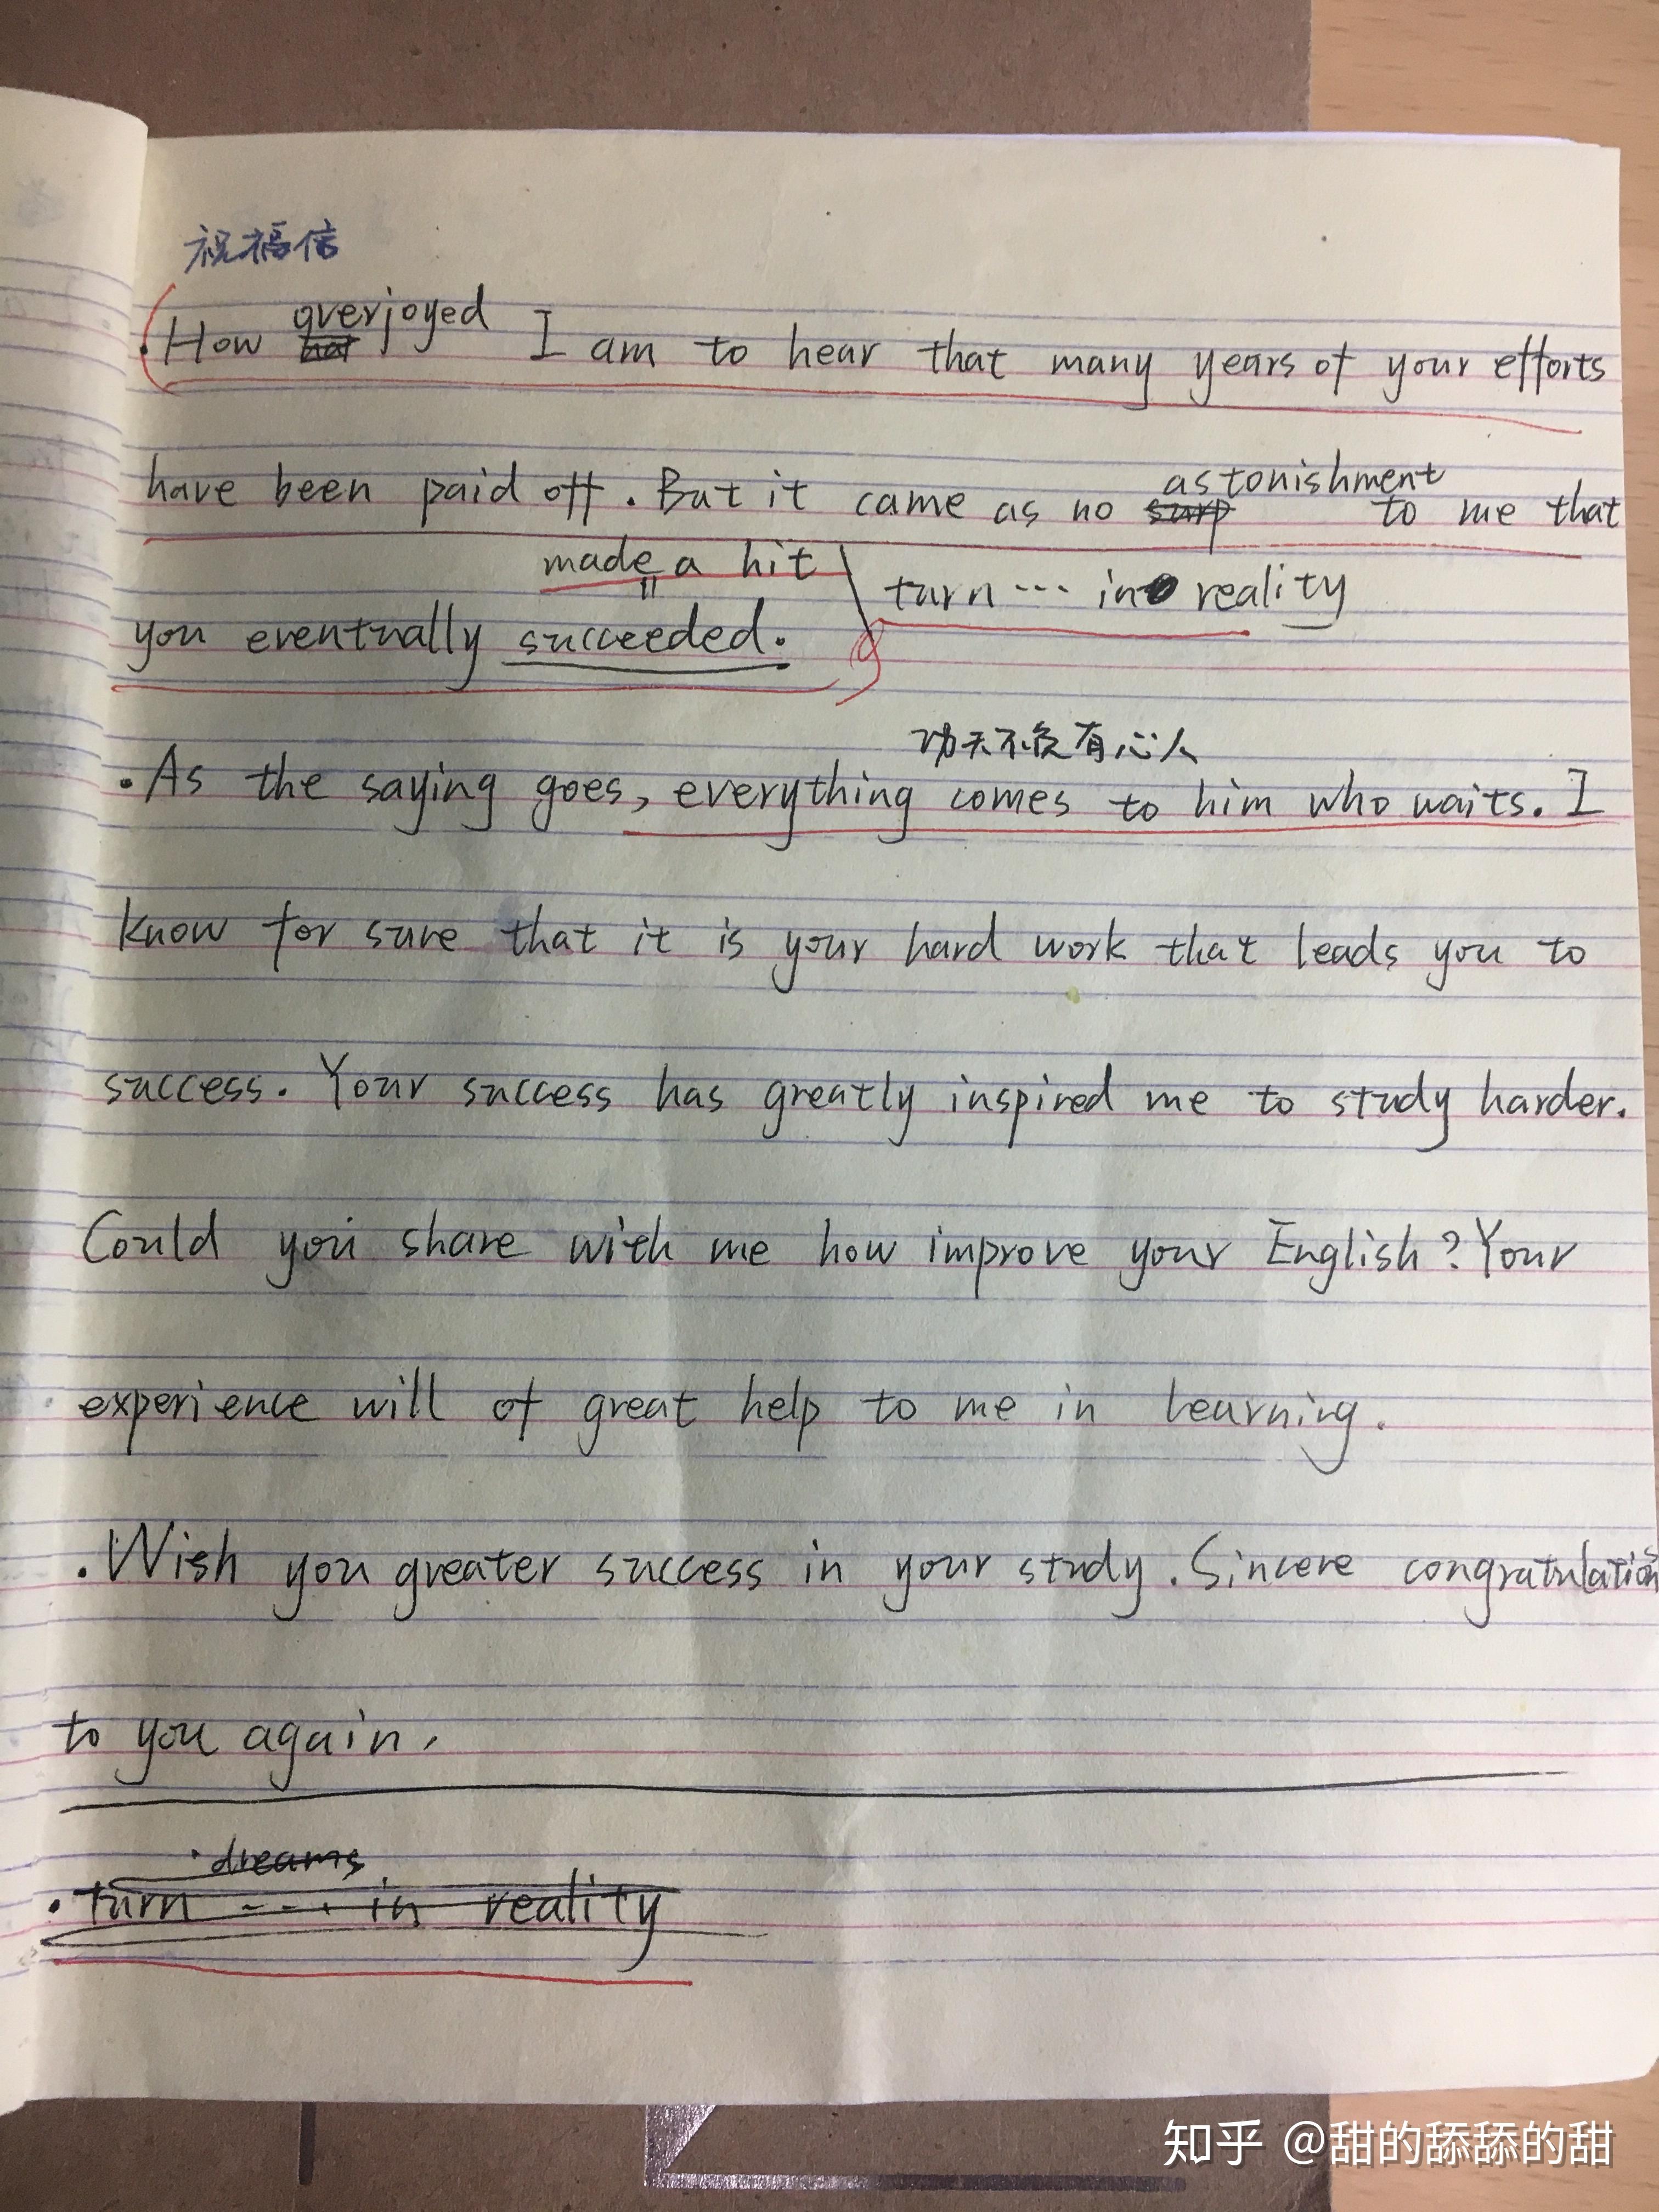 祝福信
How overjoyed I am to hear that many years of your efforts
have been paid off. But it came as no astonishment to me that
made a hit
turn ... in reality
you eventually succeeded.
功夫不负有心人
·As the saying goes, everything comes to him who waits. I
know for sure that it is your hard work that leads you to
success. Your success has greatly inspired me to study harder.
Could you share with me how improve your English? Your
experience will of great help to me in learning.
·Wish you greater success in your study. Sincere congratulations
to you again.
dreams
·turn ... in reality
知乎 @甜的舔舔的甜